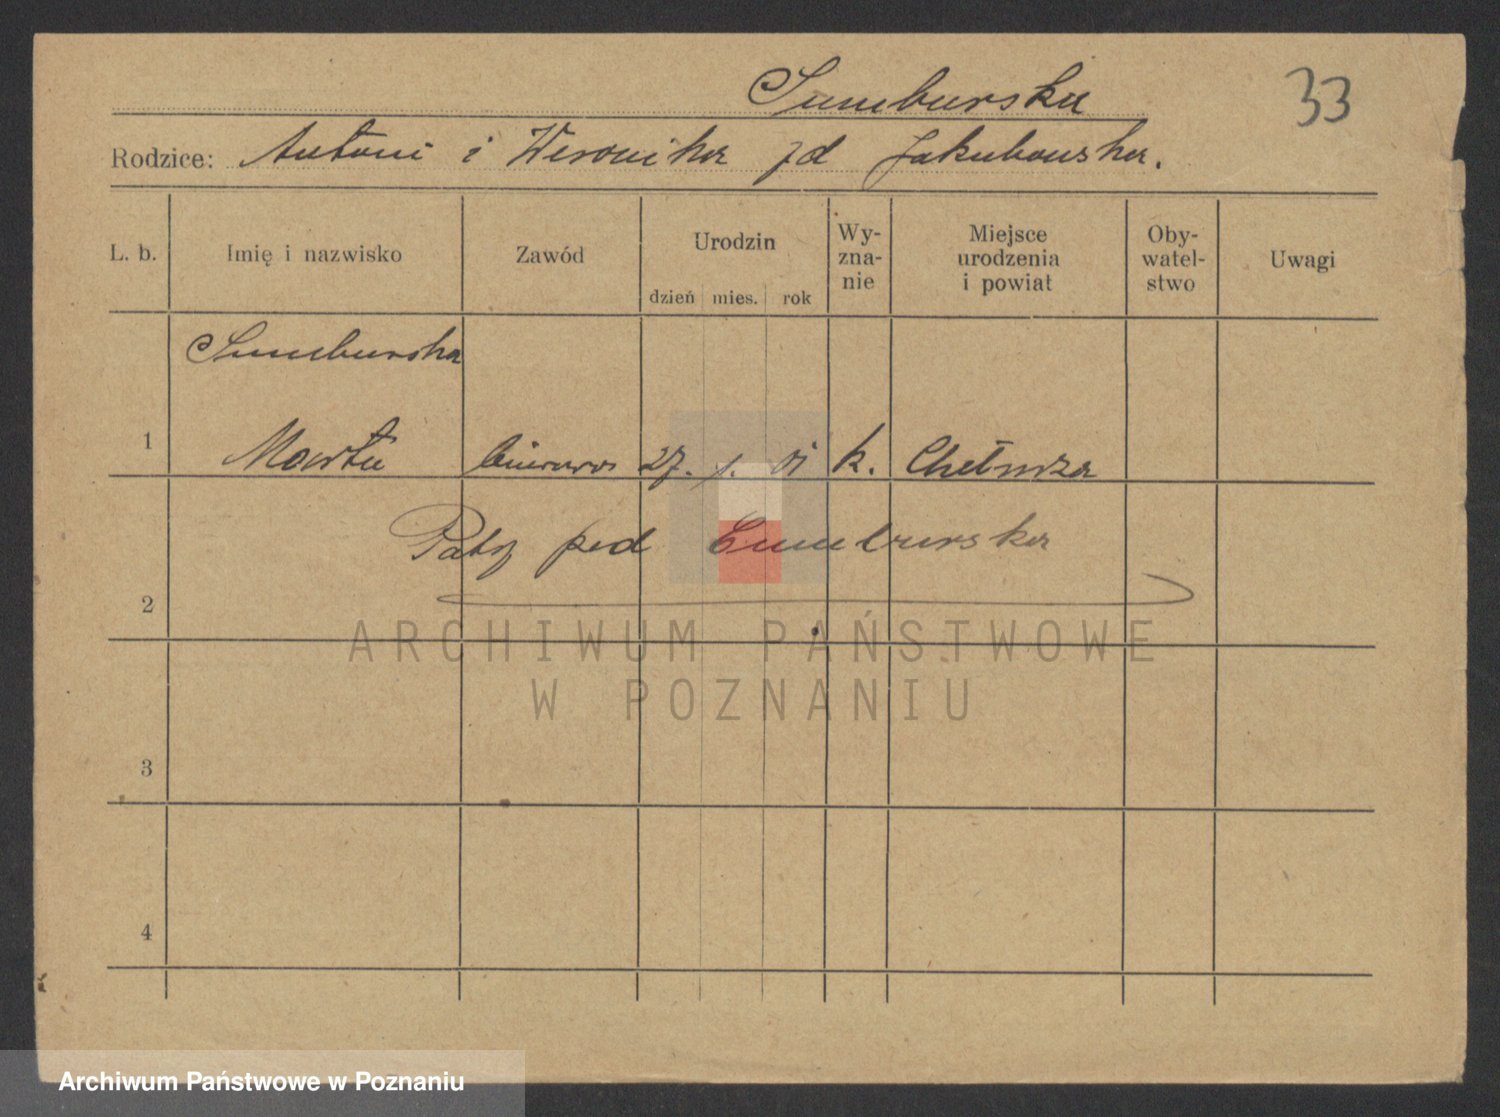 Sumburska
33
Rodzice: Antoni i Weronika zd Jakubowska.
L. b. Imię i nazwisko Zawód Urodzin dzień mies. rok Wy-zna-nie Miejsce urodzenia i powiat Oby-watel-stwo Uwagi
Sumburska
1 Marta 27. 1. 01 k. Chełmża
Patrz pod Cumburska
2
ARCHIWUM PAŃSTWOWE
W POZNANIU
3
4
Archiwum Państwowe w Poznaniu